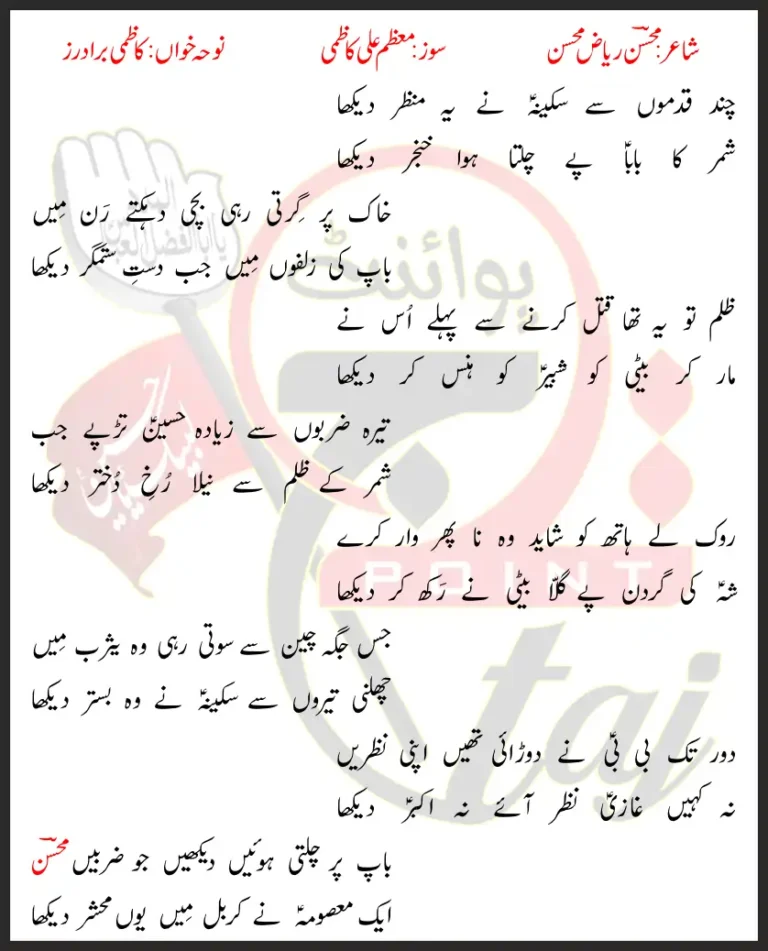 شاعر: محسنؔ ریاض محسن سوز: معظم علی کاظمی نوحہ خواں: کاظمی برادرز
چند قدموں سے سکینہؑ نے یہ منظر دیکھا
شمر کا باباؑ پے چلتا ہوا خنجر دیکھا
خاک پر گِرتی رہی بچی دہکتے رَن مِیں
باپ کی زلفوں مِیں جب دستِ ستمگر دیکھا
ظلم تو یہ تھا قتل کرنے سے پہلے اُس نے
مار کر بیٹی کو شبیرؑ کو ہنس کر دیکھا
تیرہ ضربوں سے زیادہ حسینؑ تڑپے جب
شمر کے ظلم سے نیلا رُخِ دُختر دیکھا
روک لے ہاتھ کو شاید وہ نا پھر وار کرے
شہؑ کی گردن پے گلّا بیٹی نے رَکھ کر دیکھا
جس جگہ چین سے سوتی رہی وہ یثرب مِیں
چھلنی تیروں سے سکینہؑ نے وہ بستر دیکھا
دور تک بی بیؑ نے دوڑائی تھیں اپنی نظریں
نہ کہیں غازیؑ نظر آئے نہ اکبرؑ دیکھا
باپ پر چلتی ہوئیں دیکھیں جو ضربیں محسنؔ
ایک معصومہؑ نے کربل مِیں یوں محشر دیکھا
پوائنٹ
POINT
taj
لبیک یا حسین